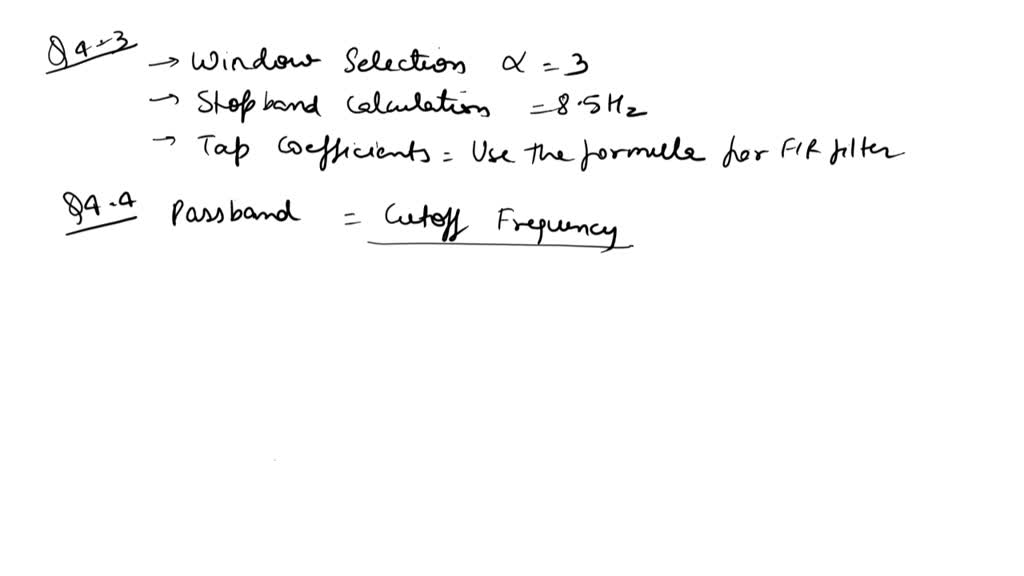 Q4.3 → Window Selection α = 3
→ Stopband Calculation = 8.5Hz
→ Tap Coefficients = Use the formula for FIR filter
Q4.4 Passband = Cutoff Frequency